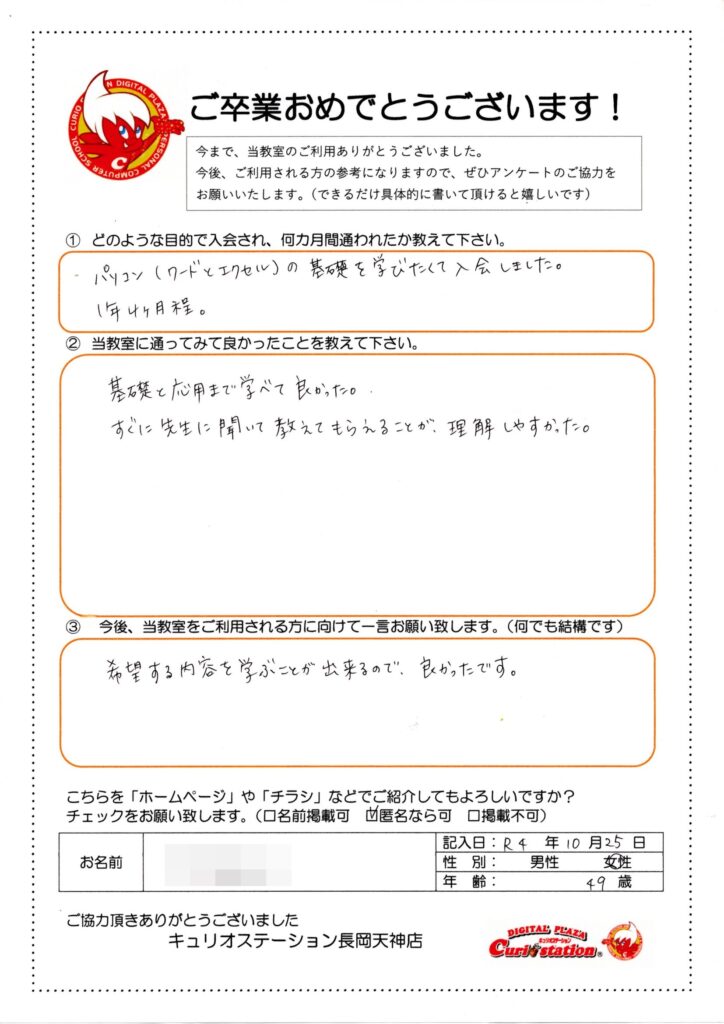 CURIO STATION DIGITAL PLAZA PERSONAL COMPUTER SCHOOL
C
ご卒業おめでとうございます！
今まで、当教室のご利用ありがとうございました。
今後、ご利用される方の参考になりますので、ぜひアンケートのご協力を
お願いいたします。（できるだけ具体的に書いて頂けると嬉しいです）
① どのような目的で入会され、何カ月間通われたか教えて下さい。
パソコン（ワードとエクセル）の基礎を学びたくて入会しました。
1年4ヶ月程。
② 当教室に通ってみて良かったことを教えて下さい。
基礎と応用まで学べて良かった。
すぐに先生に聞いて教えてもらえることが、理解しやすかった。
③ 今後、当教室をご利用される方に向けて一言お願い致します。（何でも結構です）
希望する内容を学ぶことが出来るので、良かったです。
こちらを「ホームページ」や「チラシ」などでご紹介してもよろしいですか？
チェックをお願い致します。（□名前掲載可 ☑匿名なら可 □掲載不可）
お名前
記入日：R4 年 10 月 25 日
性 別： 男性 女性
年 齢： 49 歳
ご協力頂きありがとうございました
キュリオステーション長岡天神店
DIGITAL PLAZA
キュリオステーション
Curio station®